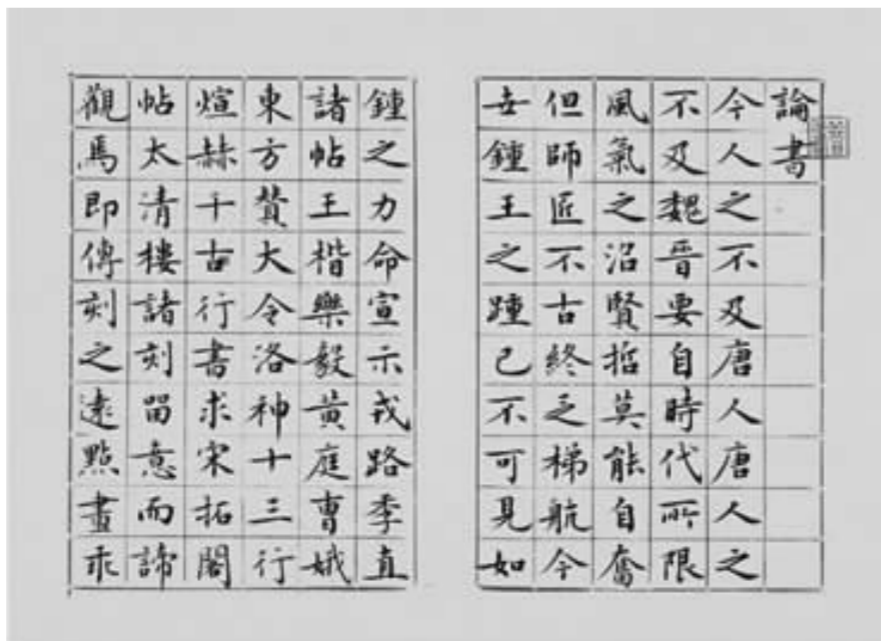 論書
今人之不及唐人唐人之
不及魏晉要自時代所限
風氣之沿賢哲莫能自奮
但師匠不古終乏梯航今
世鍾王之踵已不可見如
鍾之力命宣示戎路季直
諸帖王楷樂毅黃庭曹娥
東方賛大令洛神十三行
煊赫千古行書求宋拓閣
帖太清樓諸刻留意而諦
觀焉即傳刻之遠點畫乖